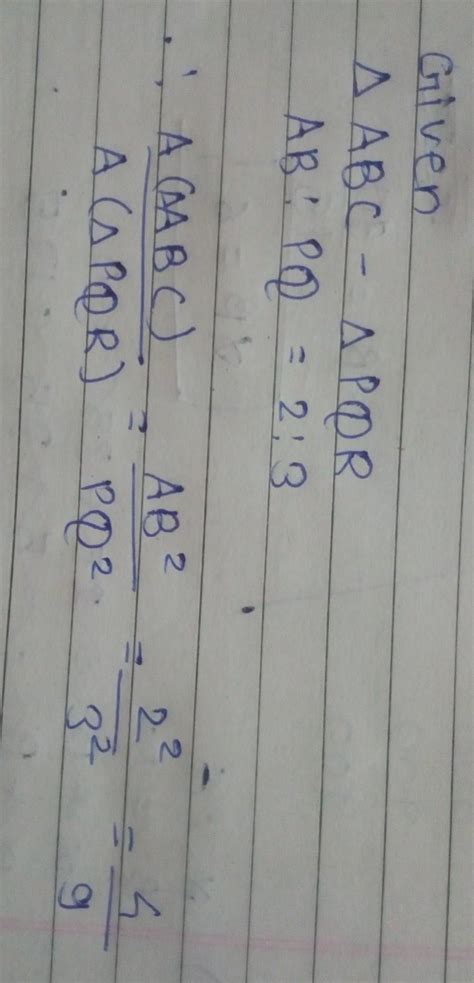 Given
Δ ABC - Δ PQR
AB : PQ = 2:3
∴ A(ΔABC) / A(ΔPQR) = AB² / PQ² = 2² / 3² = 4 / 9